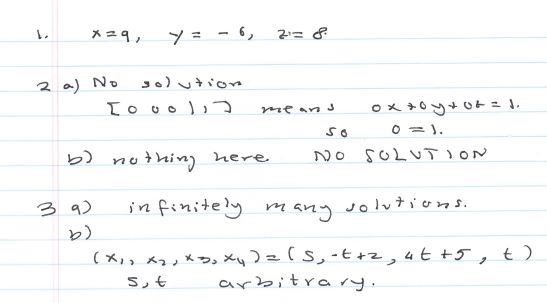 1. x=9, y = -6, z= 8.
2 a) No solution
[0 0 0 | 1] means 0x+0y+0z=1.
so 0=1.
b) nothing here. NO SOLUTION
3 a) infinitely many solutions.
b)
(x₁, x₂, x₃, x₄)=(s, -t+2, 4t+5, t)
s,t arbitrary.